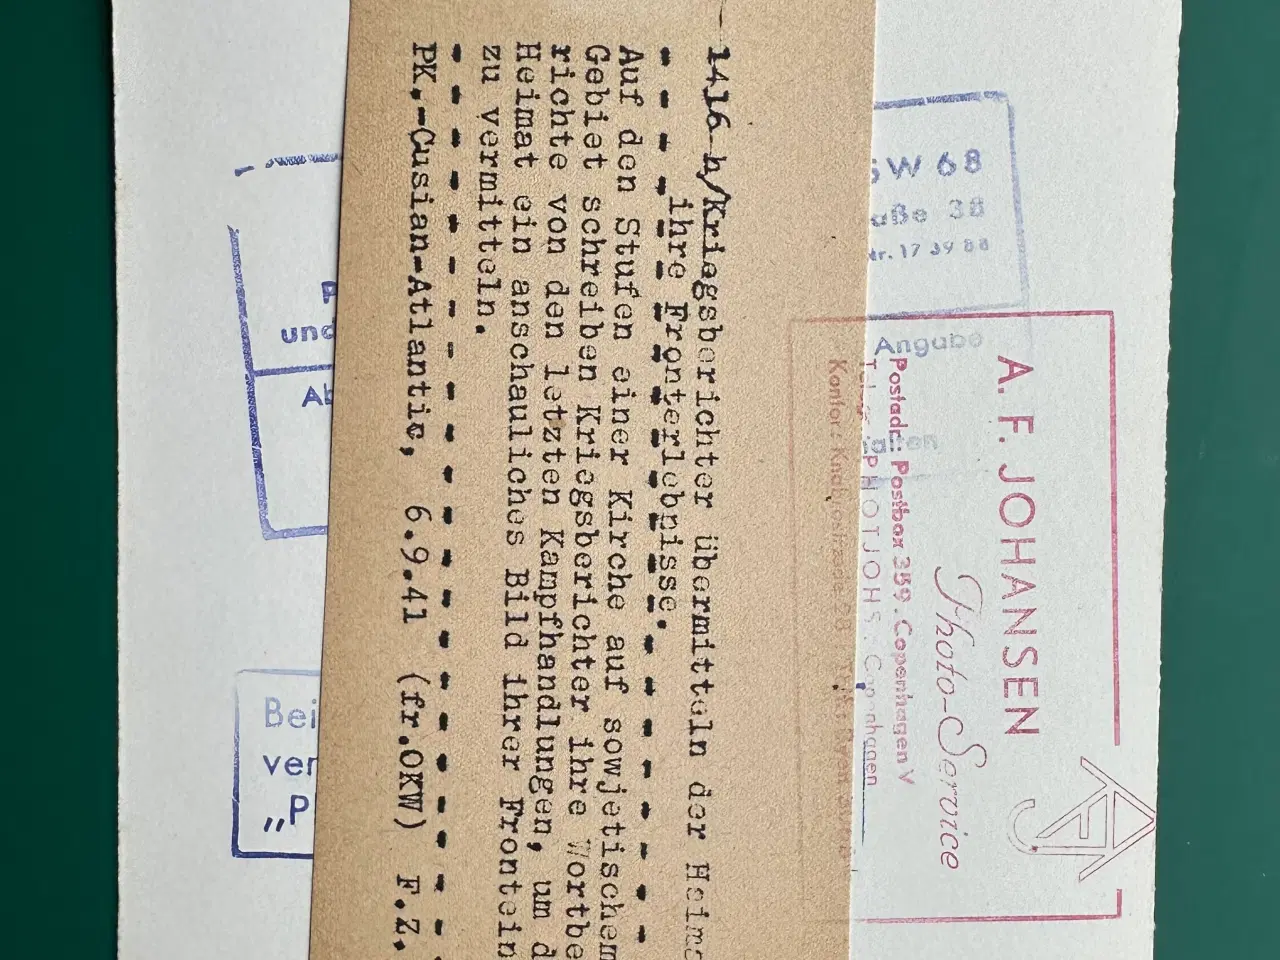 1416 h/Kriegsberichter übermitteln der Heim
ihre Fronterlebnisse.
Auf den Stufen einer Kirche auf sowjetischem
Gebiet schreiben Kriegsberichter ihre Wortbe
richte von den letzten Kampfhandlungen, um d
Heimat ein anschauliches Bild ihrer Frontein
zu vermitteln.
PK.-Cusian-Atlantic, 6.9.41 (fr.OKW) F.Z.
A. F. JOHANSEN
Photo-Service
Postadr.: Postbox 359. Copenhagen V
PHOTJOHS. Copenhagen
Kontor:
SW 68
aße 38
17 39 88
Angabe
und
Ab
Bei
ver
„P